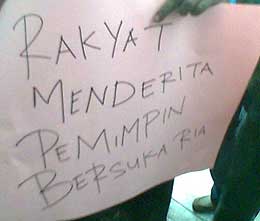 RAKYAT
MENDERITA
PEMIMPIN
BERSUKA RIA